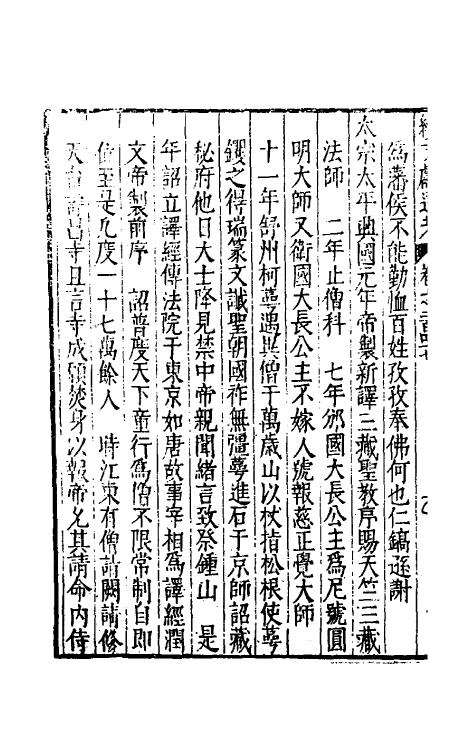 續文獻通考 卷之二百
爲藩侯不能勤恤百姓孜孜奉佛何也仁鎬遜謝
太宗太平興國元年帝製新譯三藏聖教序賜天竺三藏
法師　二年止僧科　七年邠國大長公主爲尼號圓
明大師又衛國大長公主不嫁人號報慈正覺大師
十一年舒州柯萼遇異僧于萬歲山以杖指松根使萼
钁之得瑞篆文讖聖朝國祚無彊萼進石于京師詔藏
秘府他日大士降見禁中帝親聞緒言致祭鍾山　是
年詔立譯經傳法院于東京如唐故事宰相爲譯經潤
文帝製前序　詔普度天下童行爲僧不限常制自即
位至是凡度一十七萬餘人　時江東有僧請闕請修
天台壽昌寺且言寺成願焚身以報帝允其請命內侍